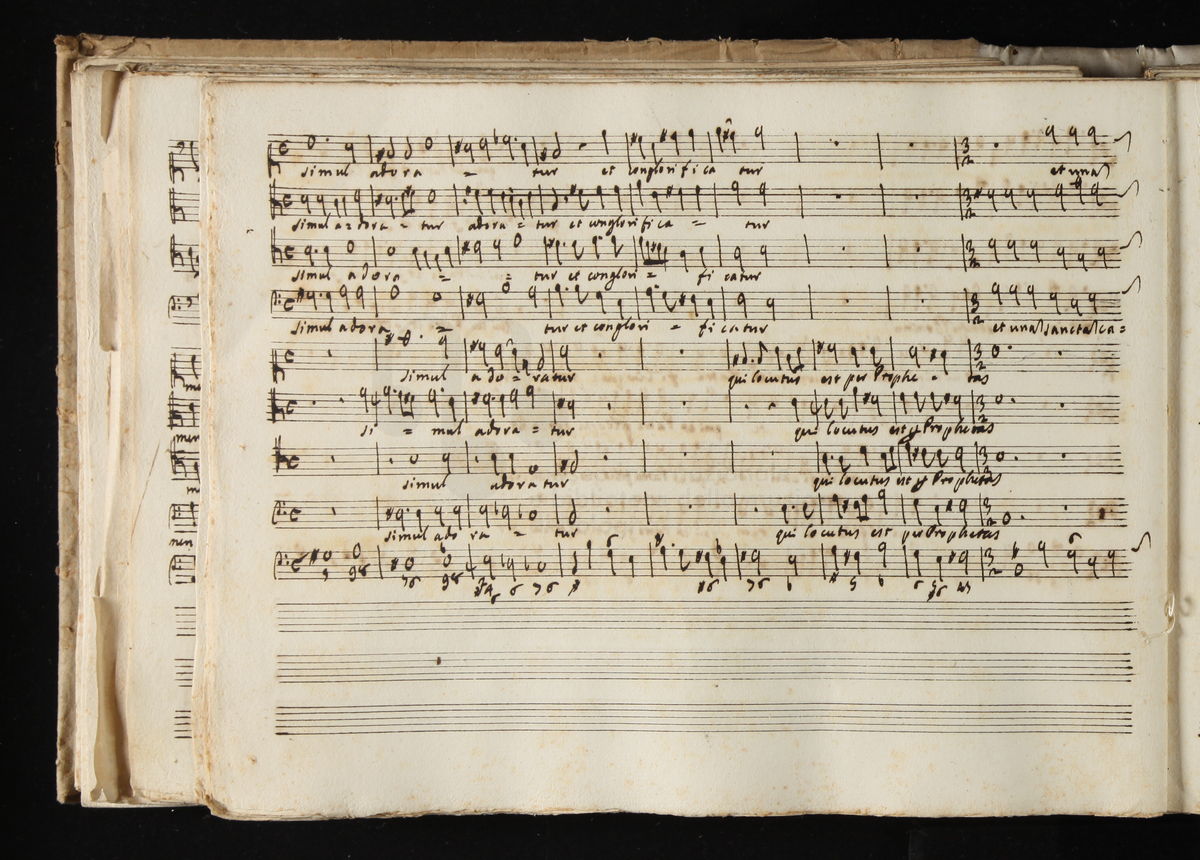 simul adora = tur et conglorifica tur et una
simul a = dora = tur adora = tur et conglorifica = tur
simul adora = = tur et conglori = fi catur
simul adora = tur et conglori = fi catur et una sancta ca =
simul ado = ratur qui locutus est per Prophe = tas
si = mul adora = tur qui locutus est p Prophetas
simul adora tur qui locutus est p Prophetas
simul ado ra = tur qui locutus est per Prophetas